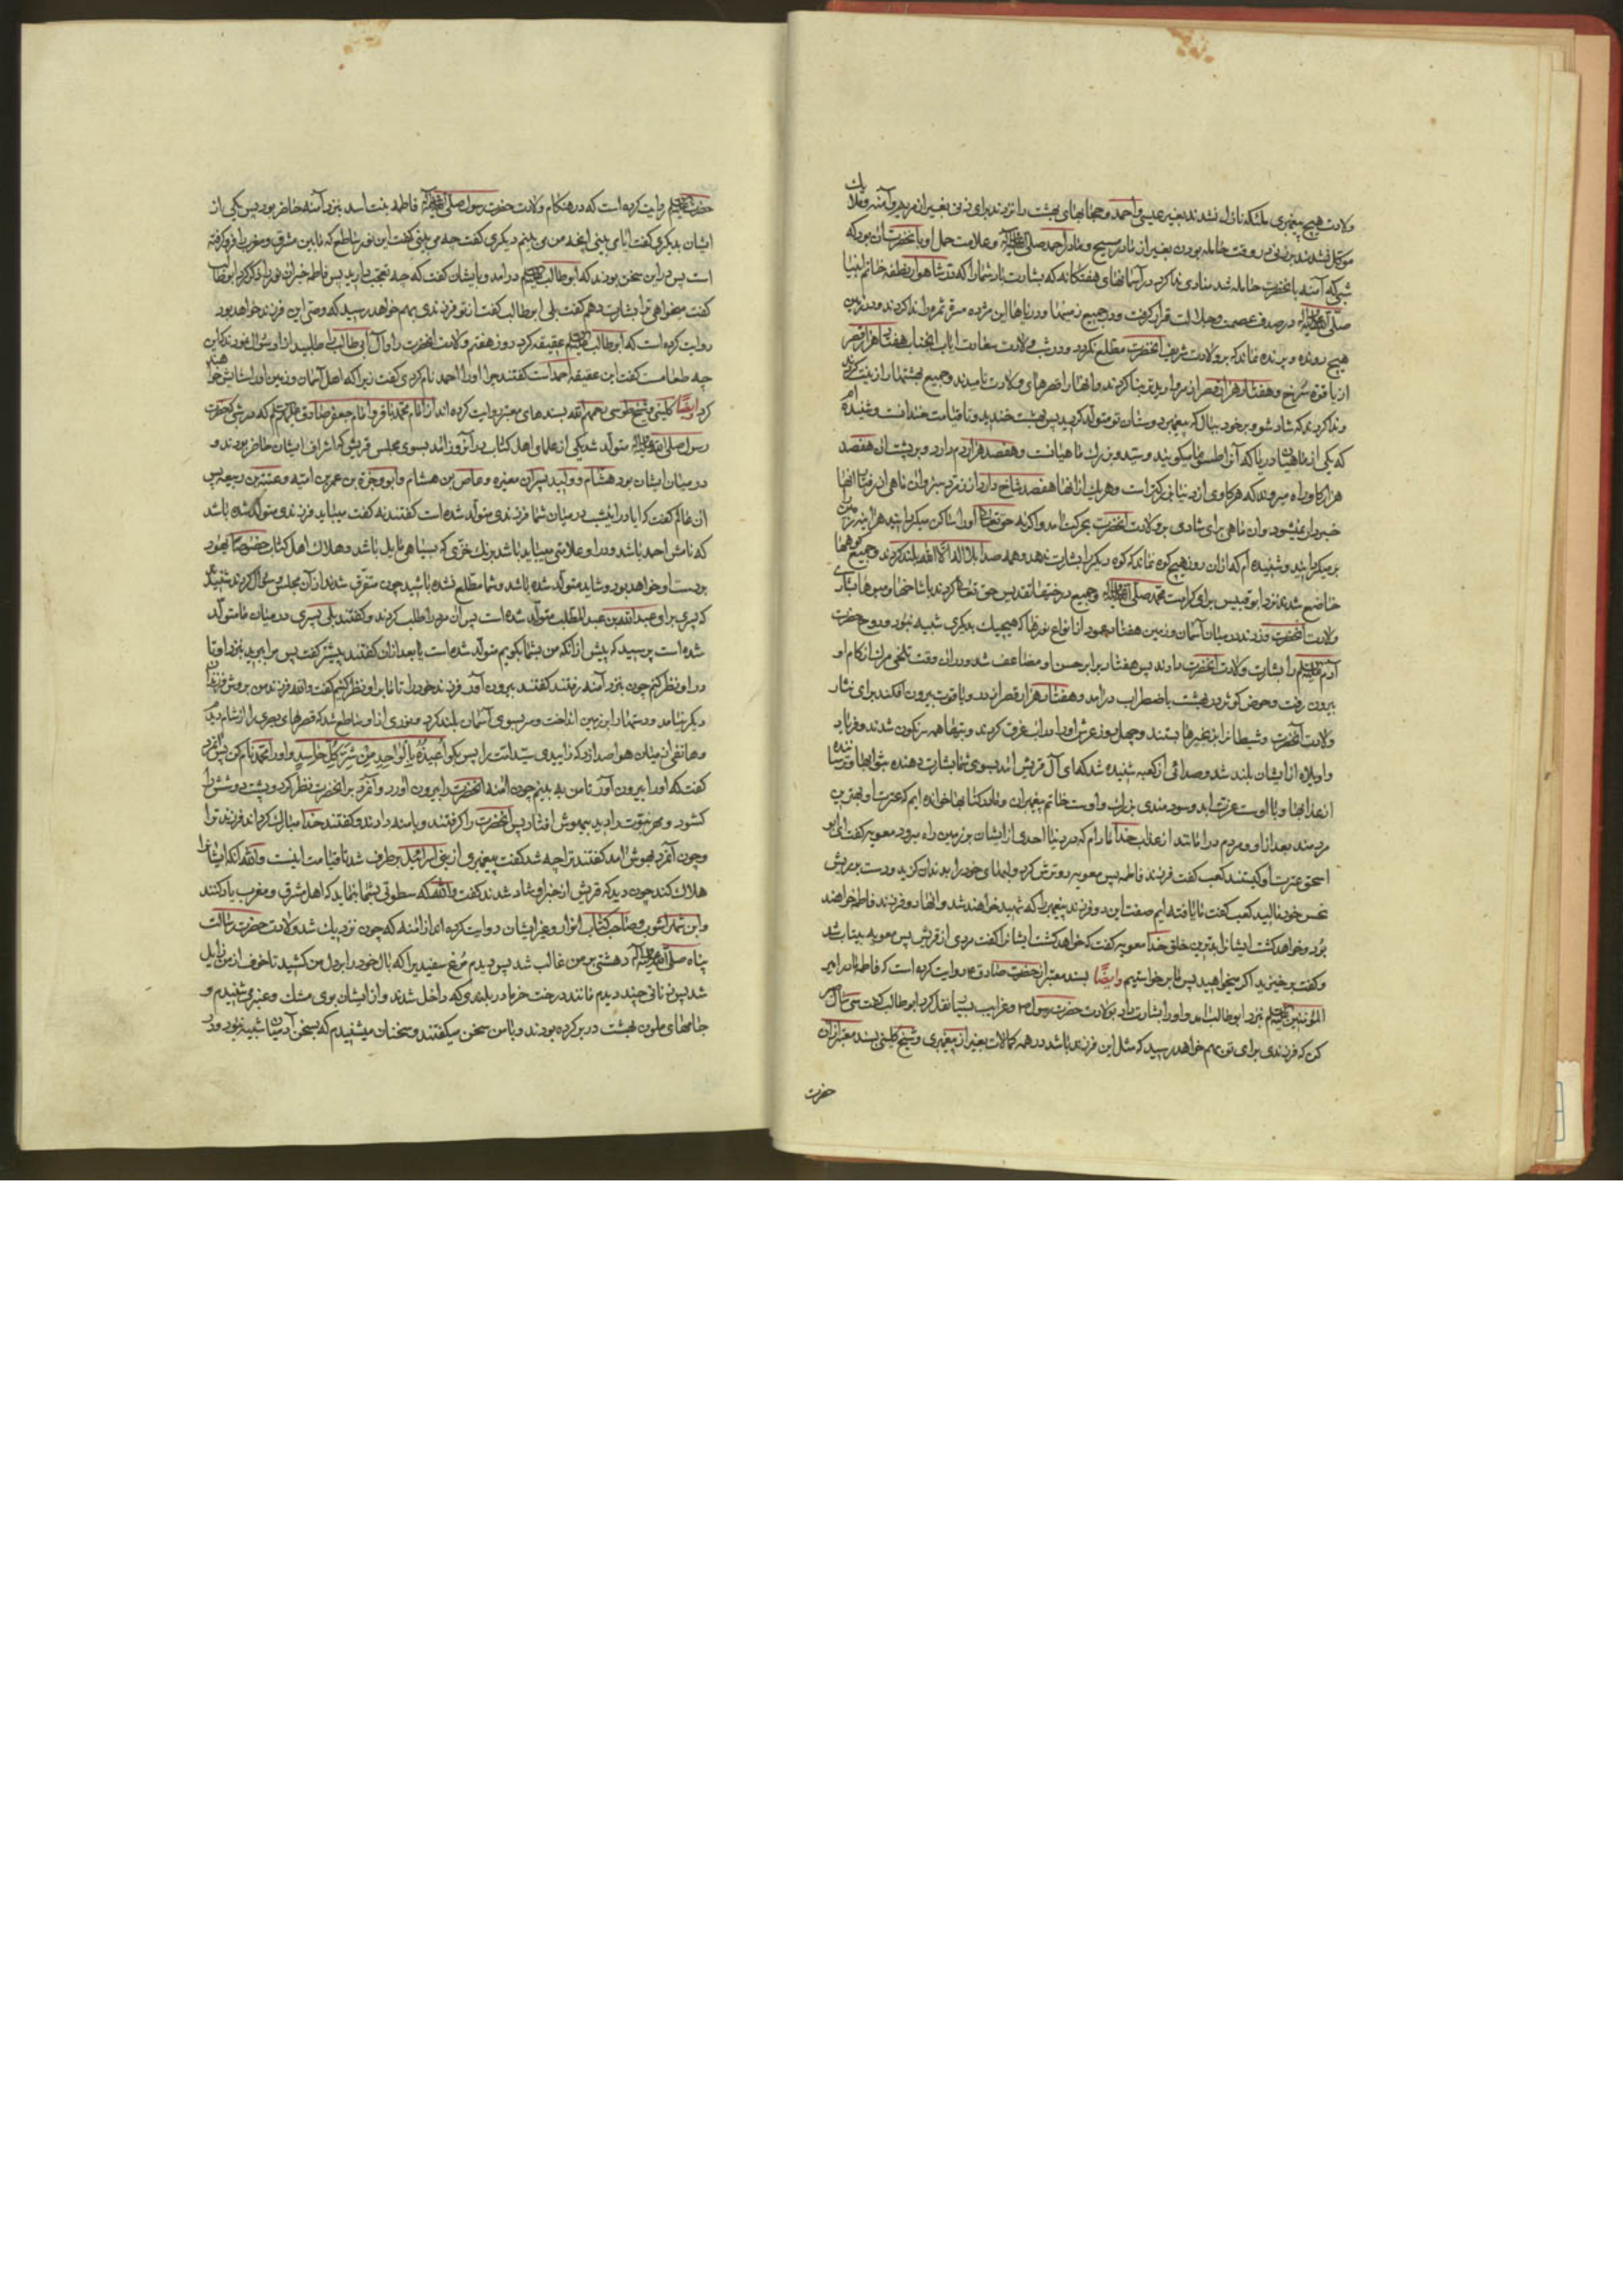 ولادت هیچ پیغمبری ملئکه نازل نشدند بغیر عیسی و احمد و حجابهای بهشت را نزدند برای زنی بغیر از مریم و آمنه و ملائک
موکل نشدند بر زنی در وقت حامله بودن بغیر از مادر مسیح و مادر احمد صلی الله علیه و آله و علامت حمل او بانحضرت آن بود که
شبی که آمنه بانحضرت حامله شد منادی ندا کرد در آسمانهای هفتکانه که بشارت باد شما را که در شاهوار نطفه خاتم انبیا
صلی الله علیه و آله در صدف عصمت و جلالت قرار کرفت و در جمیع زمینها و دریاها این مژده ندا کردند و در زمین
هیچ رونده و پرنده نماند که بر ولادت شریف انحضرت مطلع نکردد و در شب ولادت انجناب هفتاد هزار قصر
از یاقوت سرخ و هفتاد هزار قصر از مروارید تر بنا کردند و انها را قصرهای ولادت نامیدند و جمیع بهشتها را زینت کردند
و ندا کردند که شاد شو و بر خود ببال که پیغمبر دوستان تو متولد کردید پس بهشت خندید و تا قیامت خندانست و شنیده‌ام
که یکی از ماهیان دریا که آنرا طموسا میکویند و سید و بزرك ماهیانست و هفصد هزار دم دارد و بر پشت ان هفصد
هزار کاو راه میروند که هر کاوی از دنیا بزرکتر است و هر یك از انها هفصد شاخ دارد از زمرد سبز و ان ماهی از رفتار انها
خبردار نمیشود و ان ماهی برای شادی بر ولادت انحضرت بحرکت امد و اکر نه حق تعالی او را ساکن میکردانید هراینه زمین را
بر میکردانید و شنیده‌ام که از ان روز هیچ کوه نماند که کوه دیکر را بشارت ندهد و همه صدا بلا اله الا الله بلند کردند و جمیع کوهها
خاضع شدند نزد ابو قبیس برای کرامت محمد صلی الله علیه و آله و جمیع درختها تقدیس حق تعالی کردند با شاخها و میوها بشادی
ولادت انحضرت و زدند در میان آسمان و زمین هفتاد عمود از انواع نورها که هیچیك بدیکری شبیه نبود و روح حضرت
آدم علیه السلام را بشارت ولادت انحضرت دادند پس هفتاد برابر حسن او مضاعف شد و در ان وقت تلخی مرك از کام او
بیرون رفت و حوض کوثر در بهشت باضطراب درامد و هفتاد هزار قصر از در و یاقوت بیرون افکند برای نثار
ولادت آنحضرت و شیطان را بزنجیرها بستند و چهل روز عرش او را در اب غرق کردند و بتها همه سرنکون شدند و فریاد
واویلاه از ایشان بلند شد و صدائی از کعبه شنیده شد که ای آل قریش امد بسوی شما بشارت دهنده بثوابها و ترساننده
از عذابها و با اوست عزت ابد و سودمندی بزرك و اوست خاتم پیغمبران و ما در کتابها خوانده‌ایم که عترت او بهترین
مردمند بعد از او و مردم در امانند از عذاب خدا مادام که در دنیا احدی از ایشان بر زمین راه میرود معویه کفت ای ابو
اسحق عترت او کیستند کعب کفت فرزند فاطمه پس معویه رو ترش کرد و لبهای خود را بدندان کزید و دست بر ریش
نحس خود مالید کعب کفت ما یافته‌ایم صفت این دو فرزند پیغمبر را که شهید خواهند شد و انها دو فرزند فاطمه خواهند
بود و خواهد کشت ایشانرا بدترین خلق خدا معویه کفت که خواهد کشت ایشانرا کفت مردی از قریش پس معویه بیتاب شد
و کفت برخیزید اکر میخواهید پس ما برخواستیم وایضا بسند معتبر از حضرت صادق ع روایت کرده است که فاطمه مادر امیر
المؤمنین علیه السلام بنزد ابو طالب امد و او را بشارت داد بولادت حضرت رسول ص و غرایب بسیار نقل کرد ابو طالب کفت سی سال صبر
کن که فرزندی برای تو بهم خواهد رسید که مثل این فرزند باشد در همه کمالات بغیر از پیغمبری و شیخ کلینی بسند معتبر از ان
حضرت
حضرت علیه السلام روایت کرده است که در هنکام ولادت حضرت رسول صلی الله علیه و آله فاطمه بنت اسد بنزد آمنه حاضر بود پس یکی از
ایشان بدیکری کفت ایا می بینی انچه من می بینم دیکری کفت چه می بینی کفت این نور ساطع که ما بین مشرق و مغرب را فرو کرفته
است پس در این سخن بودند که ابو طالب علیه السلام درامد و بایشان کفت که چه تعجب دارید پس فاطمه خبر ان نور را ذکر کرد ابو طالب
کفت میخواهی ترا بشارت دهم کفت بلی ابو طالب کفت از تو فرزندی بهم خواهد رسید که وصی این فرزند خواهد بود
روایت کرده است که ابو طالب علیه السلام عقیقه کرد روز هفتم ولادت انحضرت را و آل ابی طالب را طلبید از او سؤال نمودند که این
چه طعامست کفت این عقیقه احمد است کفتند چرا او را احمد نام کردی کفت زیرا که اهل آسمان و زمین او را ستایش خواهند
کرد وایضا کلینی و شیخ طوسی رحمهم الله بسندهای معتبر روایت کرده‌اند از امام محمد باقر و امام جعفر صادق علیهم السلام که در شبی که حضرت
رسول صلی الله علیه و آله متولد شد یکی از علمای اهل کتاب در آنروز امد بسوی مجلس قریش که اشراف ایشان حاضر بودند و
در میان ایشان بود هشام و ولید پسران مغیره و عاص بن هشام و ابو وجزة بن عمر بن امیه و عتبة بن ربیعه پس
ان عالم کفت که ایا در این شب در میان شما فرزندی متولد شده است کفتند نه کفت میباید فرزندی متولد شده باشد
که نامش احمد باشد و در او علامتی میباید باشد برنك خزی که بسیاهی مایل باشد و هلاك اهل کتاب خصوصا یهود
بردست او خواهد بود و شاید متولد شده باشد و شما مطلع نشده باشید چون متفرق شدند از آن مجلس و سؤال کردند شنیدند
که پسری برای عبد الله بن عبد المطلب متولد شده است پس ان مرد را طلب کردند و کفتند بلی پسری در میان ما متولد
شده است پرسید که پیش از انکه من بشما بکویم متولد شده است یا بعد از ان کفتند پیشتر کفت پس مرا ببرید بنزد او تا
در او نظر کنم چون بنزد آمنه رفتند کفتند بیرون آور فرزند خود را تا ما بر او نظر کنیم کفت والله فرزند من بروش فرزندان
دیکر نیامد و دستها را بر زمین انداخت و سر بسوی آسمان بلند کرد و نوری از او ساطع شد که قصرهای بصری را از شام دیدم
و هاتفی از میان هوا صدا زد که زاییدی سید امت را پس بکو اعیذه بالواحد من شر کل حاسد و او را محمد نام کن پس آنمرد
کفت که او را بیرون آور تا من به بینم چون امنه انحضرت را بیرون اورد و آنمرد بر انحضرت نظر کرد و پشت دوشش را
کشود و مهر نبوت را دید بیهوش افتاد پس انحضرت را کرفتند و بامنه دادند و کفتند خدا مبارك کرداند فرزند ترا
و چون آنمرد بهوش امد کفتند ترا چه شد کفت پیغمبری از بنی اسرائیل برطرف شد تا قیامت اینست والله انکه ایشانرا
هلاك کند چون دید که قریش از خبر او شاد شدند کفت والله که سطوتی بشما بنماید که اهل مشرق و مغرب یاد کنند
وابن شهر اشوب و صاحب کتاب انوار و غیر ایشان روایت کرده‌اند از امنه که چون نزدیك شد ولادت حضرت رسالت
پناه صلی الله علیه و آله دهشتی بر من غالب شد پس دیدم مرغ سفیدیرا که بال خود را بر دل من کشید تا خوف از من زایل
شد پس زنانی چند دیدم مانند درخت خرما در بلندی که داخل شدند و از ایشان بوی مشك و عنبر می شنیدم و
جامهای ملون بهشت در بر کرده بودند و با من سخن میکفتند و سخنان میشنیدم که بسخن آدمیان شبیه نبود و در